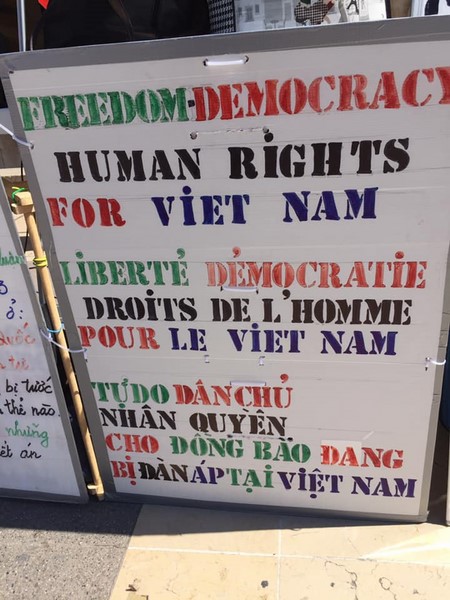 FREEDOM DEMOCRACY
HUMAN RIGHTS
FOR VIET NAM
LIBERTÉ DÉMOCRATIE
DROITS DE L'HOMME
POUR LE VIET NAM
TỰ DO DÂN CHỦ
NHÂN QUYỀN
CHO ĐỒNG BÀO ĐANG
BỊ ĐÀN ÁP TẠI VIỆT NAM
ở:
bị tước
thế nào
những